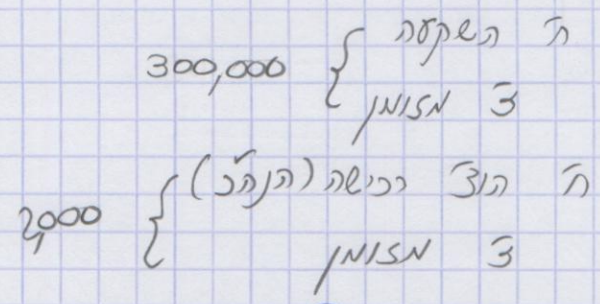 ח' השקעה
300,000 {
ז' מזומן
ח' הוצ' רכישה (הנה"כ)
2,000 {
ז' מזומן